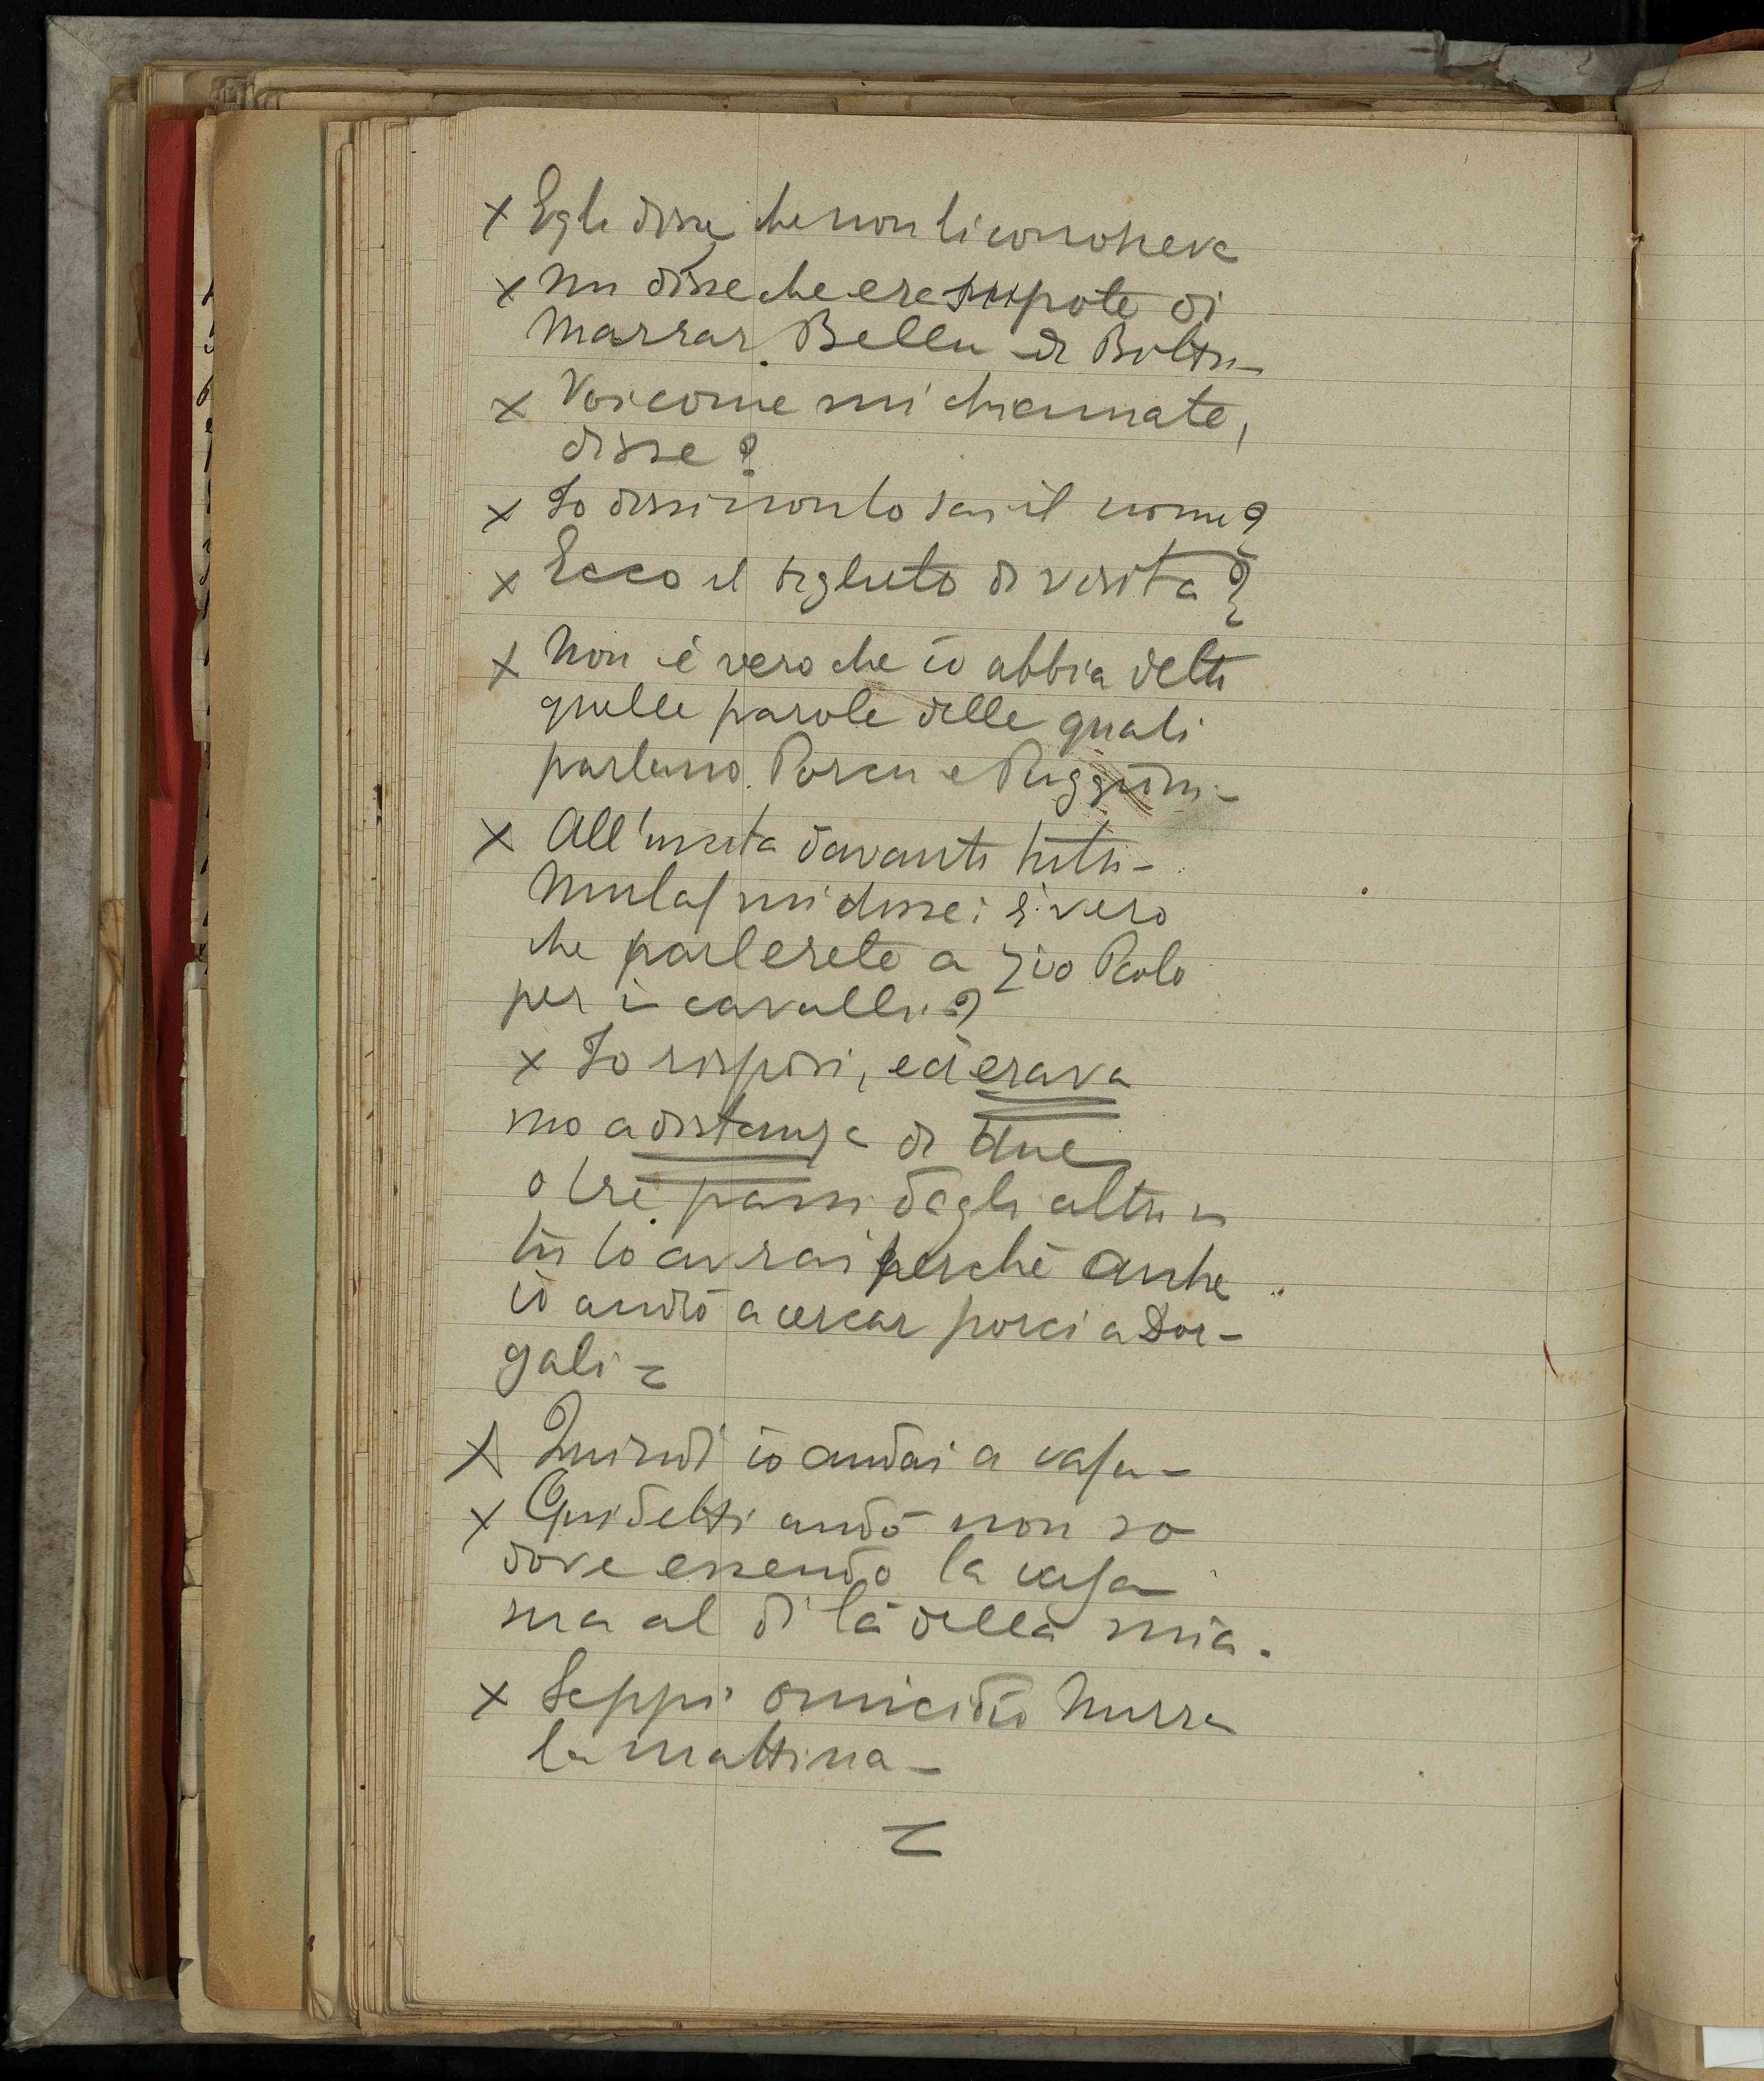 x Egli disse che non li conosceva
x Mi disse che era nipote di
Marras Bellu di Bolt
x Voi come mi chiamate,
disse?
x Io dissi non lo sai il nome?
x Ecco il biglietto di visita?
x Non è vero che io abbia detto
quelle parole delle quali
parlano Porcu e Puggioni -
x All'uscita davanti tutti -
Mulas mi disse: è vero
che parlerete a zio Paolo
per i cavalli?
x Io risposi, ed erava
mo a distanza di due
o tre passi dagli altri
tu lo avrai perchè anche
io andrò a cercar porci a Dor-
gali =
x Quindi io andai a casa -
x Guidetti andò non so
dove essendo la casa
sua al di là della mia.
x Seppi omicidio Murra
la mattina -